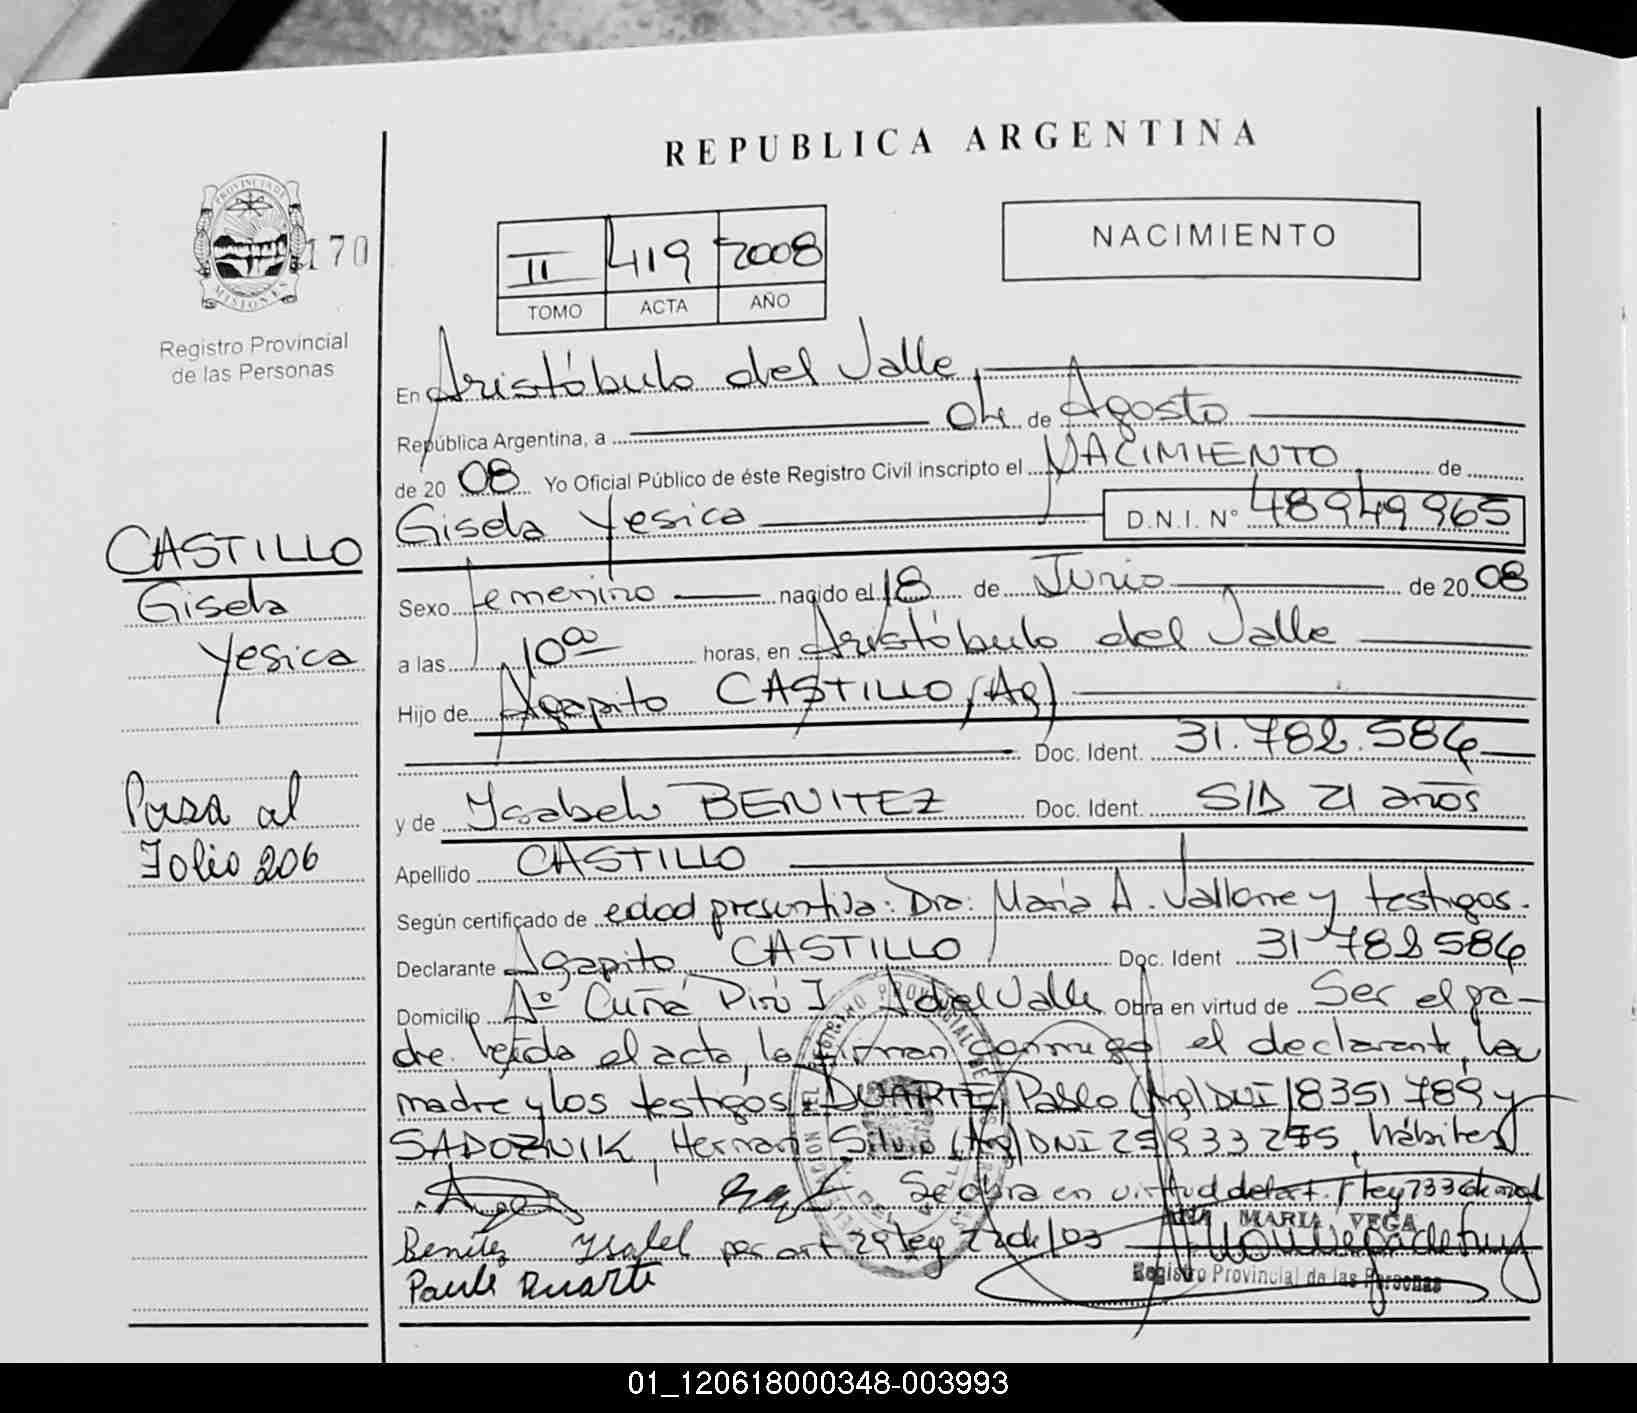 REPUBLICA ARGENTINA
PROVINCIA DE
MISIONES
170
Registro Provincial
de las Personas
II 419 2008
TOMO ACTA AÑO
NACIMIENTO
En Aristóbulo del Valle,
República Argentina, a 04 de Agosto
de 20 08 Yo Oficial Público de éste Registro Civil inscripto el NACIMIENTO de
Gisela Yesica D.N.I. Nº 48949965
CASTILLO
Gisela
Yesica
Sexo femenino nacido el 18 de Junio de 20 08
a las 10 horas, en Aristóbulo del Valle
Hijo de Agapito CASTILLO (Ag)
Doc. Ident. 31.782.584
y de Ysabel BENITEZ Doc. Ident. S/D 21 años
Pasa al
Folio 206
Apellido CASTILLO
Según certificado de edad presuntiva: Dra: María A. Vallone y testigos.
Declarante Agapito CASTILLO Doc. Ident 31782584
Domicilio Aº Cuña Pirú I A del Valle Obra en virtud de Ser el pa-
dre. Leída el acta, la firman conmigo el declarante, la
madre y los testigos DUARTE, Pablo (Ag) DNI 18351789 y
SADOZNIK, Hernan Silvio (Ag) DNI 25933275, hábiles
Se obra en virtud del art. ley
Benitez Ysabel por art 29 ley
ANA MARIA VEGA
Registro Provincial de las Personas
Duarte
01_120618000348-003993